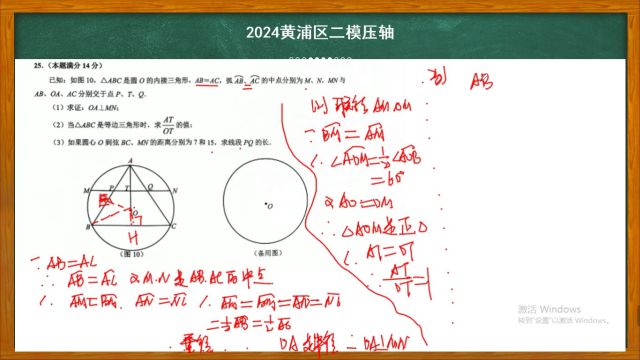 2024黄浦区二模压轴
25.（本题满分 14 分）
已知：如图 10，△ABC 是圆 O 的内接三角形，AB=AC，弧 AB、AC 的中点分别为 M、N，MN 与
AB、OA、AC 分别交于点 P、T、Q.
（1）求证：OA⊥MN；
（2）当△ABC 是等边三角形时，求 AT/OT 的值；
（3）如果圆心 O 到弦 BC、MN 的距离分别为 7 和 15，求线段 PQ 的长.
A
M P T Q N
O
7
B H C
（图 10）
O
（备用图）
∵ AB=AC
∴ AB=AC 又M.N是AB.AC的中点
∴ AM=BM. AN=NC ∴ AM=BM=AN=NC
=½AB=½AC
垂径 OA⊥MN
AM OM
∵ BM=AM
∴ ∠AOM=½∠AOB
=60°
又AO=OM
∴ △AOM是正△
∴ AT=OT
∴ AT/OT=1
3)
AB
激活 Windows
转到"设置"以激活 Windows。